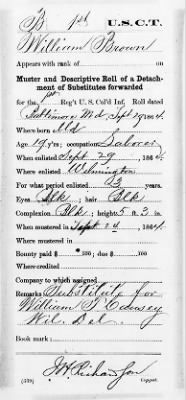 B 1st U.S.C.T.
William Brown
Appears with rank of on
Muster and Descriptive Roll of a Detach-
ment of Substitutes forwarded
for the 1st Reg't U. S. Col'd Inf. Roll dated
Baltimore Md Sept 29 1864.
Where born Md
Age 19 y'rs; occupation Laborer
When enlisted Sept 29, 1864.
Where enlisted Wilmington
For what period enlisted 3 years.
Eyes Blk; hair Blk
Complexion Blk; height 5 ft. 3 in.
When mustered in Sept 24, 1864.
Where mustered in
Bounty paid $ 100; due $ 100
Where credited
Company to which assigned
Remarks: Substitute for
William
Wil. Del.
Book mark:
J H Richardson
(339) Copyist.